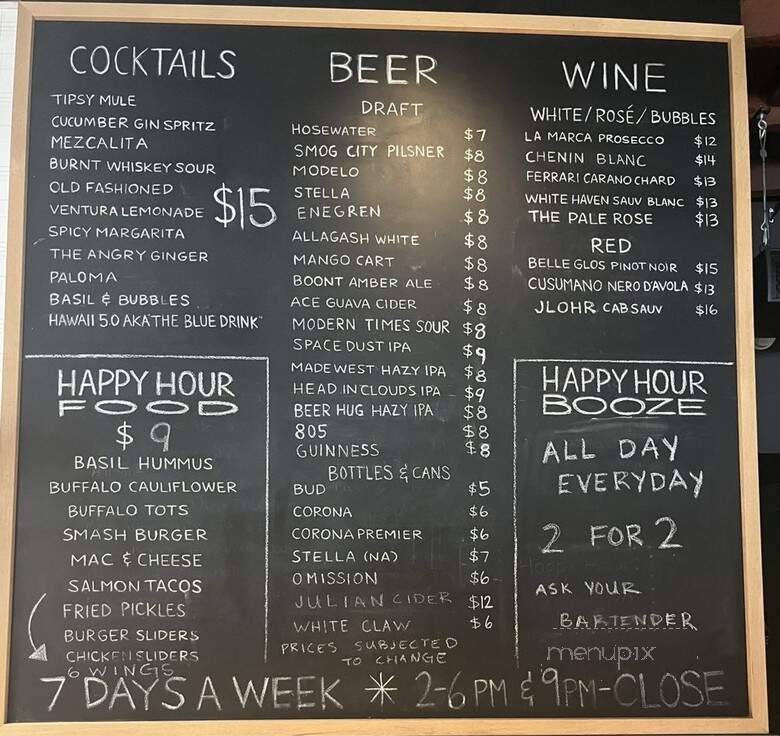 COCKTAILS
TIPSY MULE
CUCUMBER GIN SPRITZ
MEZCALITA
BURNT WHISKEY SOUR
OLD FASHIONED
VENTURA LEMONADE
SPICY MARGARITA
THE ANGRY GINGER
PALOMA
BASIL & BUBBLES
HAWAII 5.0 AKA "THE BLUE DRINK"
$15
HAPPY HOUR
FOOD
$9
BASIL HUMMUS
BUFFALO CAULIFLOWER
BUFFALO TOTS
SMASH BURGER
MAC & CHEESE
SALMON TACOS
FRIED PICKLES
BURGER SLIDERS
CHICKEN SLIDERS
6 WINGS
BEER
DRAFT
HOSEWATER $7
SMOG CITY PILSNER $8
MODELO $8
STELLA $8
ENEGREN $8
ALLAGASH WHITE $8
MANGO CART $8
BOONT AMBER ALE $8
ACE GUAVA CIDER $8
MODERN TIMES SOUR $8
SPACE DUST IPA $9
MADEWEST HAZY IPA $8
HEAD IN CLOUDS IPA $9
BEER HUG HAZY IPA $8
805 $8
GUINNESS $8
BOTTLES & CANS
BUD $5
CORONA $6
CORONA PREMIER $6
STELLA (NA) $7
OMISSION $6
JULIAN CIDER $12
WHITE CLAW $6
PRICES SUBJECTED
TO CHANGE
WINE
WHITE/ROSÉ/BUBBLES
LA MARCA PROSECCO $12
CHENIN BLANC $14
FERRARI CARANO CHARD $13
WHITE HAVEN SAUV BLANC $13
THE PALE ROSE $13
RED
BELLE GLOS PINOT NOIR $15
CUSUMANO NERO D'AVOLA $13
JLOHR CAB SAUV $16
HAPPY HOUR
BOOZE
ALL DAY
EVERYDAY
2 FOR 2
ASK YOUR
BARTENDER
menupix
7 DAYS A WEEK * 2-6 PM & 9PM-CLOSE